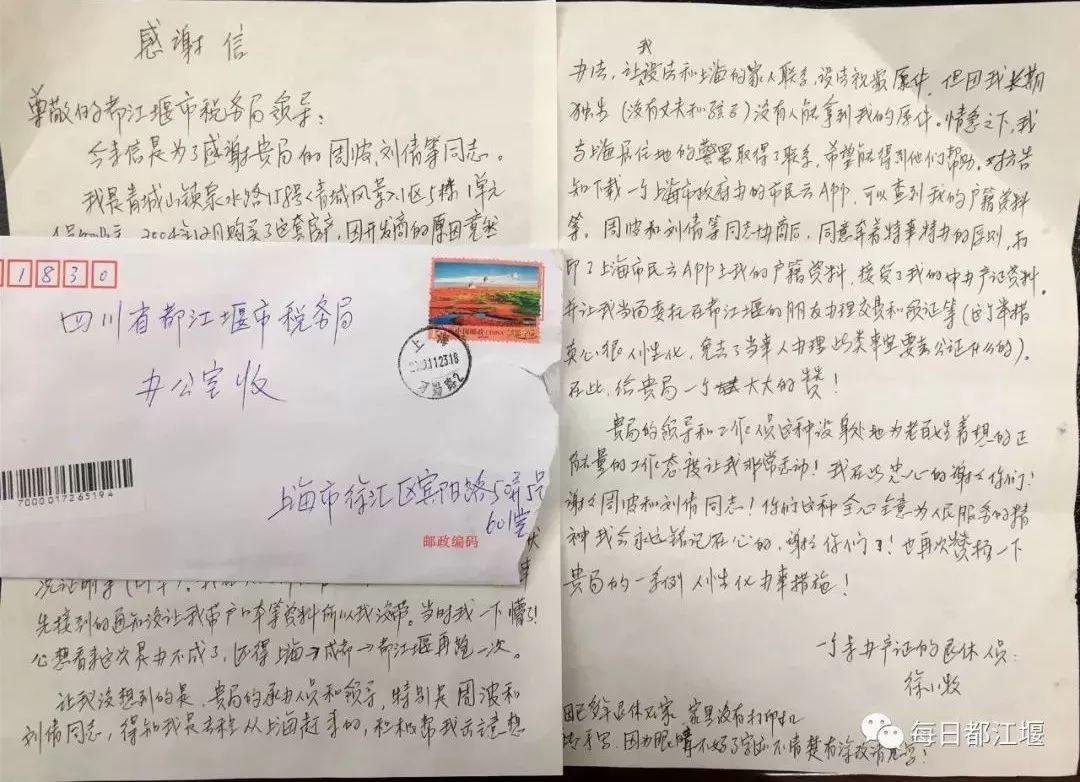 感谢信
尊敬的都江堰市税务局领导：
今来信是为了感谢贵局的周波、刘倩等同志。
我是青城山镇泉水路158号《青城风景》区5栋1单元
2004年12月购买了这套房产，因开发商的原因竟然
1830
四川省都江堰市税务局
办公室收
上海
2019.11.23.18
中国邮政 CHINA
7000017265194
上海市徐汇区宾阳路50弄5号
601室
邮政编码
先接到的通知没让我带户口本等资料所以我没带。当时我一下懵了！
心想看来这次是办不成了，还得上海→成都→都江堰再跑一次。
让我没想到的是，贵局的承办人员和领导，特别是周波和
刘倩同志，得知我是专程从上海赶来的，积极帮我出主意想
我
办法，让设法和上海的家人联系，设法视频原件，但因我长期
独步（没有丈夫和孩子）没有人能拿到我的原件。情急之下，我
与上海居住地的警署取得了联系，希望能得到他们帮助。对方告
知下载一个上海市政府办的市民云APP，可以查到我的户籍资料
等。周波和刘倩等同志协商后，同意本着特事特办的原则，打
印了上海市民云APP上我的户籍资料，接受了我的申办产证资料。
并让我当面委托在都江堰的朋友办理交费和领证等（这个举措
真心很人生化，免去了当事人办理此类事宜要去公证什么的）。
在此，给贵局一个大大的赞！
贵局的领导和工作人员这种设身处地为老百姓着想的正
能量的工作态度让我非常感动！我在此衷心的谢谢你们！
谢谢周波和刘倩同志！你们这种全心全意为人民服务的精
神我会永远铭记在心的，谢谢你们了！也再次赞扬一下
贵局的一系列人生化办事措施！
一个来办产证的退休人员：
徐小牧
因已多年退休在家，家里没有打印机
故手写，因为眼睛不好了字迹不清楚有涂改请见谅！
每日都江堰